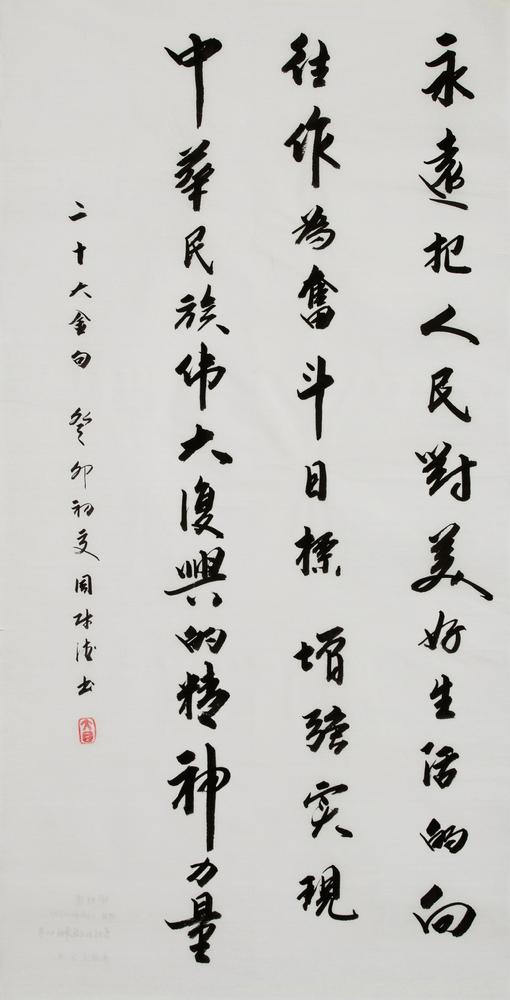 永遠把人民對美好生活的向
往作為奮斗目標 增强实現
中華民族伟大復興的精神力量
二十大金句 癸卯初夏周 书